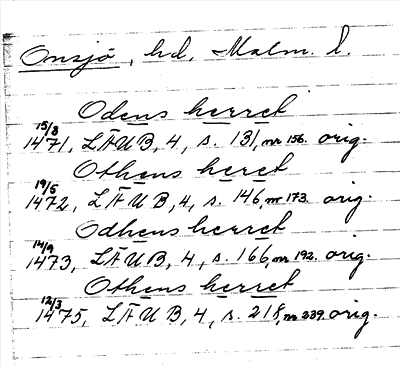 Onsjö, hd, Malm. l.
Odens herret
15/8
1471, LÄUB, 4, s. 131, nr 156. orig.
Othens heret
19/5
1472, LÄUB, 4, s. 146, nr 173. orig.
Odhens herret
14/9
1473, LÄUB, 4, s. 166, nr 192. orig.
Othens herret
12/3
1475, LÄUB, 4, s. 218, nr 239. orig.